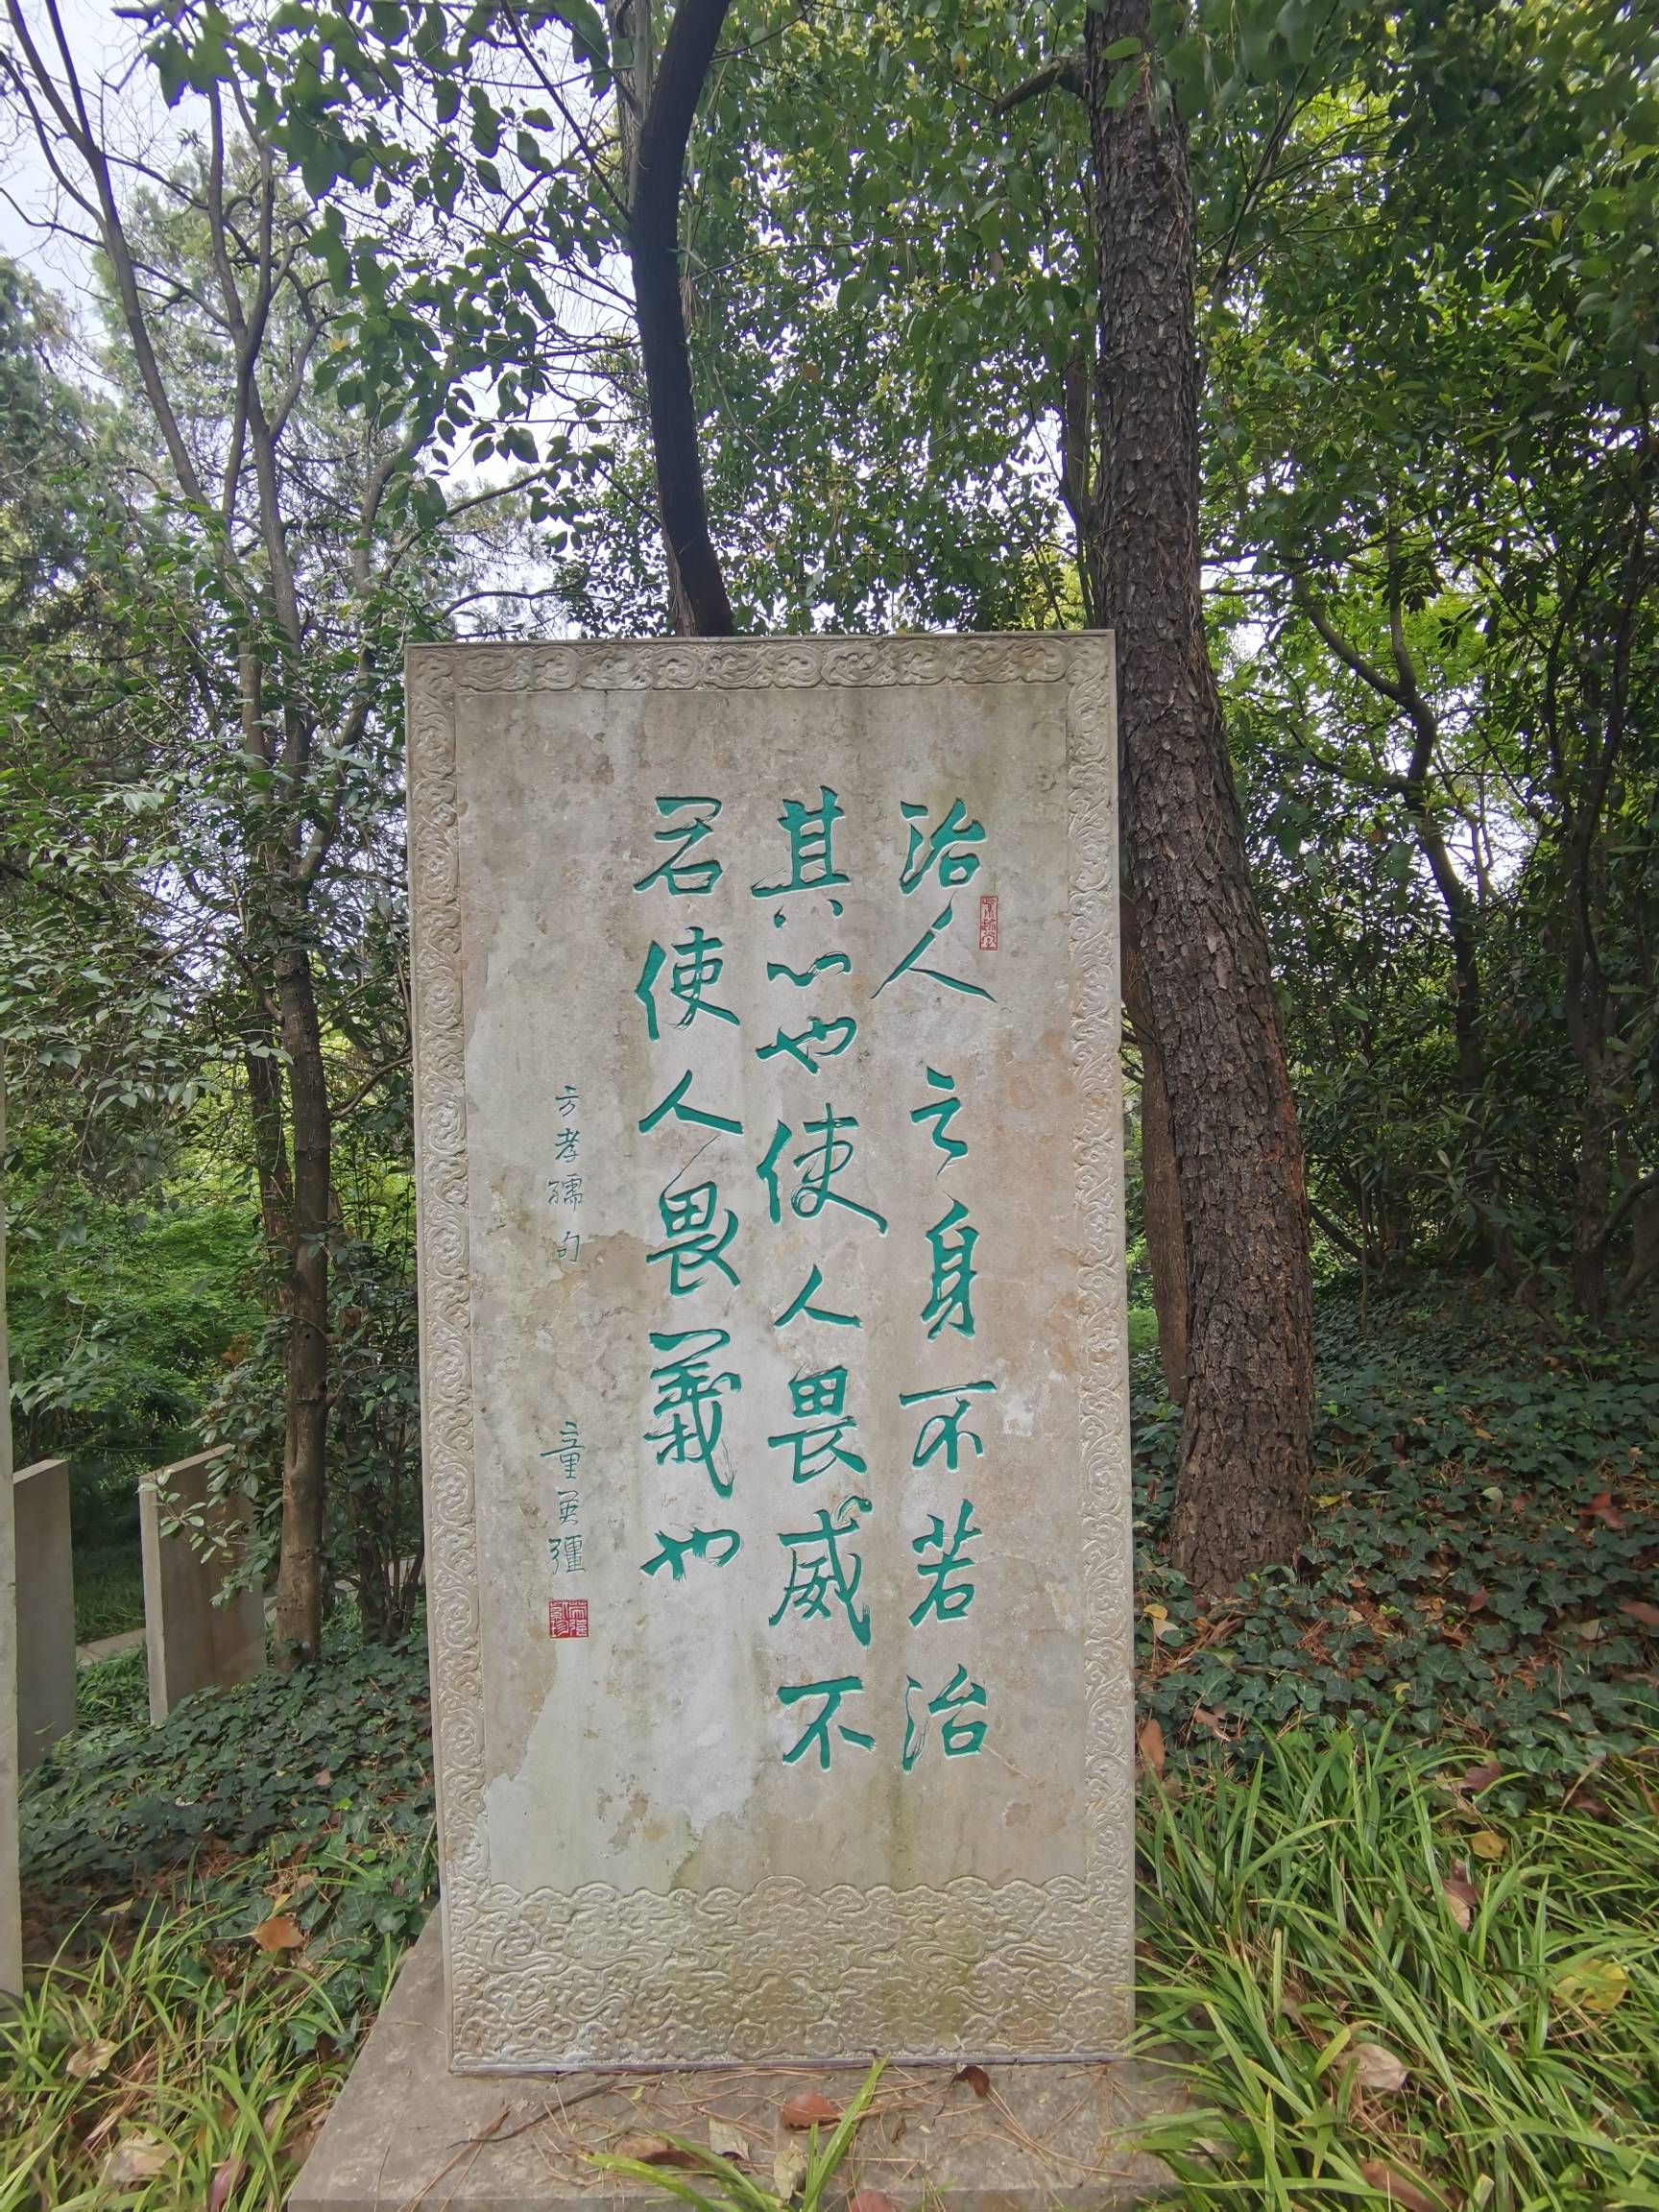 治人之身不若治
其心也使人畏威不
若使人畏義也
方孝孺句
童英彊